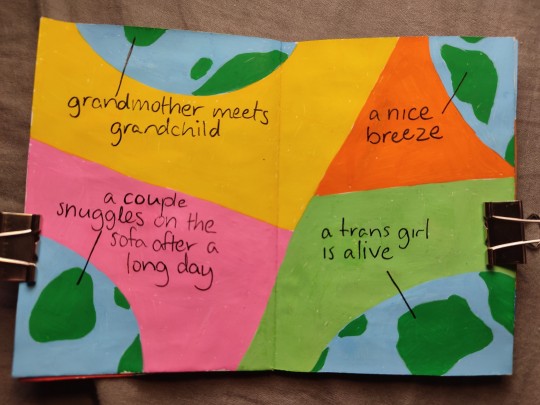 grandmother meets
grandchild
a nice
breeze
a couple
snuggles on the
sofa after a
long day
a trans girl
is alive